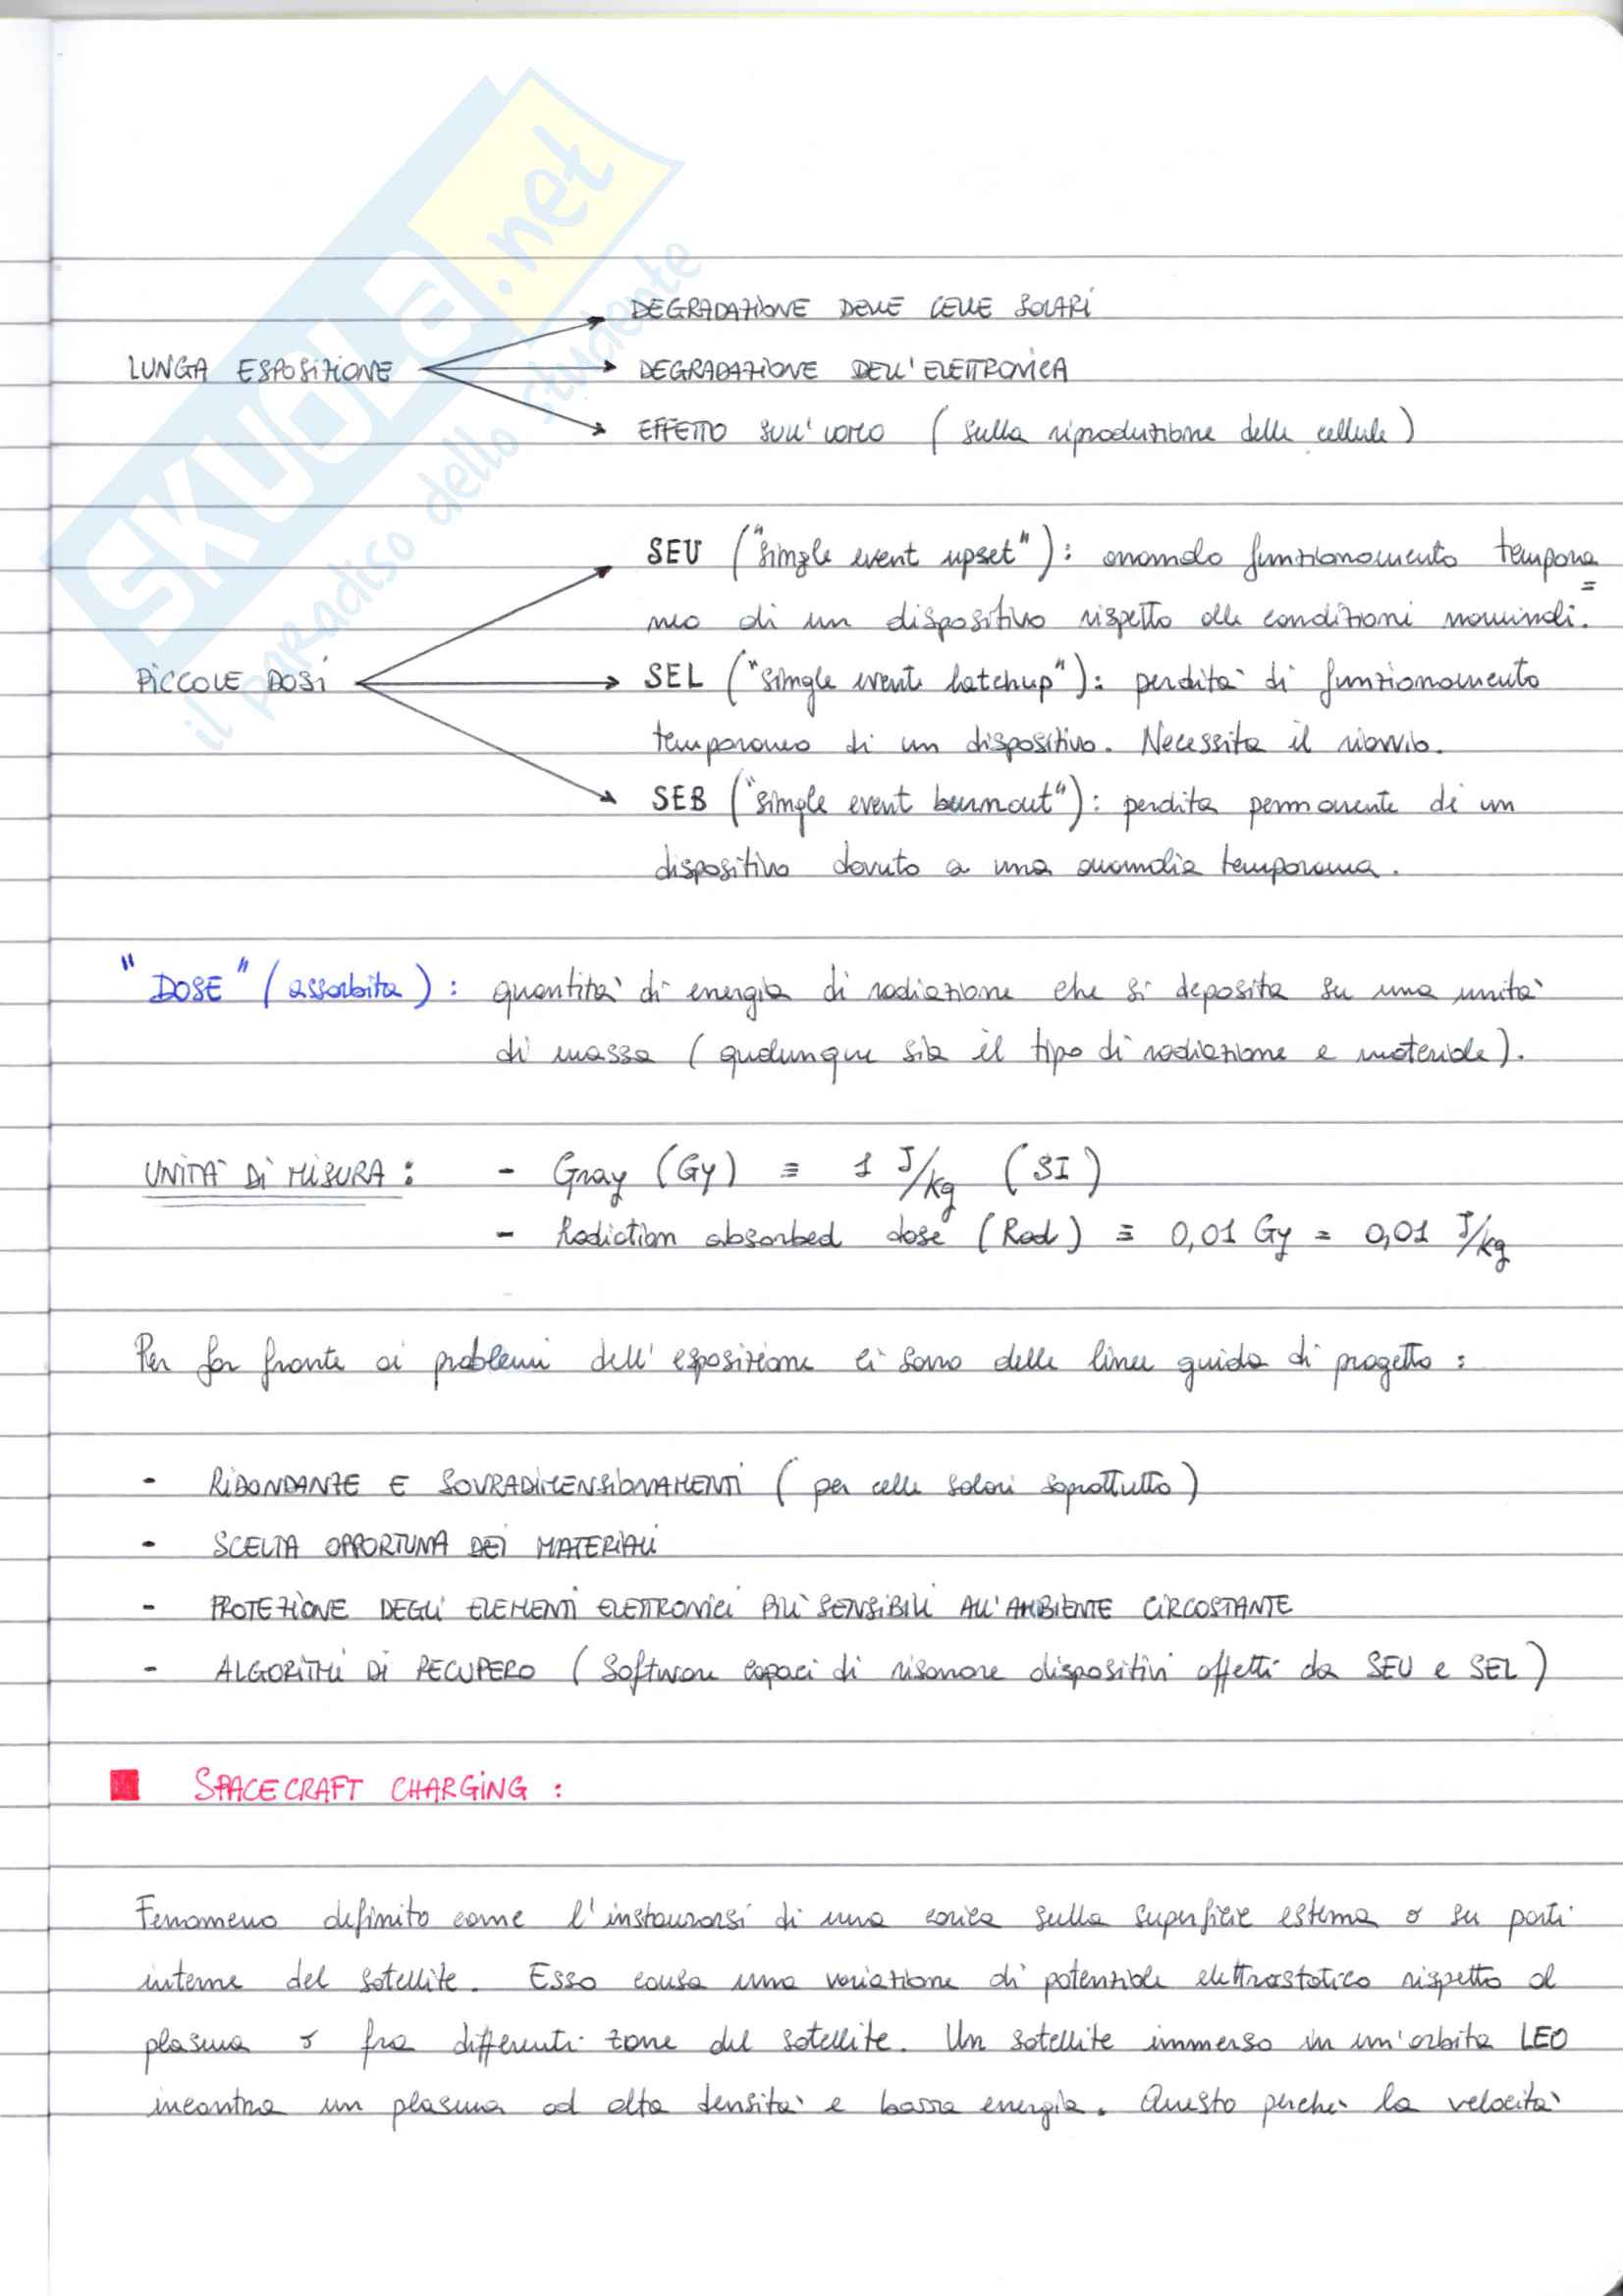 SKUOLA.net
il paradiso dello studente
DEGRADAZIONE DELLE CELLE SOLARI
LUNGA ESPOSIZIONE
DEGRADAZIONE DELL'ELETTRONICA
EFFETTO SULL'UOMO (sulla riproduzione delle cellule)
SEU ("single event upset"): anomalo funzionamento tempora=
neo di un dispositivo rispetto alle condizioni nominali.
PICCOLE DOSI
SEL ("single event latchup"): perdita di funzionamento
temporaneo di un dispositivo. Necessita il riavvio.
SEB ("single event burnout"): perdita permanente di un
dispositivo dovuto a una anomalia temporanea.
"DOSE" (assorbita): quantità di energia di radiazione che si deposita su una unità
di massa (qualunque sia il tipo di radiazione e materiale).
UNITÀ DI MISURA: - Gray (Gy) ≡ 1 J/kg (SI)
- Radiation absorbed dose (Rad) ≡ 0,01 Gy = 0,01 J/kg
Per far fronte ai problemi dell'esposizione ci sono delle linee guida di progetto:
- RIDONDANZE E SOVRADIMENSIONAMENTI (per celle solari soprattutto)
- SCELTA OPPORTUNA DEI MATERIALI
- PROTEZIONE DEGLI ELEMENTI ELETTRONICI PIÙ SENSIBILI ALL'AMBIENTE CIRCOSTANTE
- ALGORITMI DI RECUPERO (Software capaci di risanare dispositivi affetti da SEU e SEL)
SPACECRAFT CHARGING:
Fenomeno definito come l'instaurarsi di una carica sulla superficie esterna o su parti
interne del satellite. Esso causa una variazione di potenziale elettrostatico rispetto al
plasma o fra differenti zone del satellite. Un satellite immerso in un'orbita LEO
incontra un plasma ad alta densità e bassa energia. Questo perché la velocità